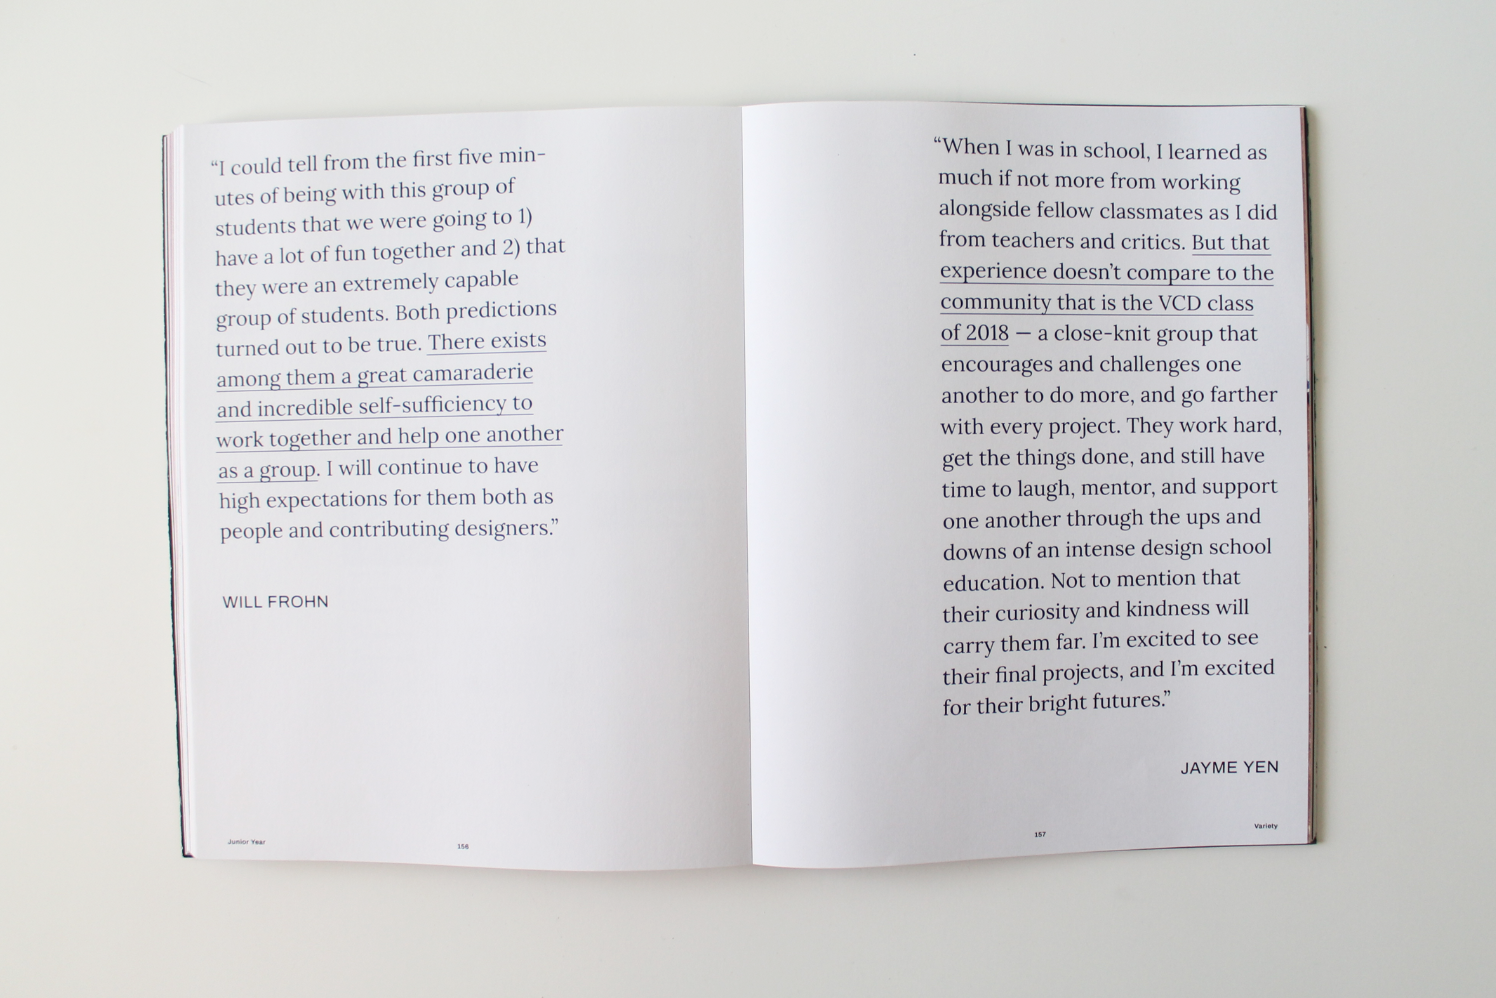 “I could tell from the first five min-
utes of being with this group of
students that we were going to 1)
have a lot of fun together and 2) that
they were an extremely capable
group of students. Both predictions
turned out to be true. There exists
among them a great camaraderie
and incredible self-sufficiency to
work together and help one another
as a group. I will continue to have
high expectations for them both as
people and contributing designers.”
WILL FROHN
Junior Year
156
“When I was in school, I learned as
much if not more from working
alongside fellow classmates as I did
from teachers and critics. But that
experience doesn’t compare to the
community that is the VCD class
of 2018 — a close-knit group that
encourages and challenges one
another to do more, and go farther
with every project. They work hard,
get the things done, and still have
time to laugh, mentor, and support
one another through the ups and
downs of an intense design school
education. Not to mention that
their curiosity and kindness will
carry them far. I’m excited to see
their final projects, and I’m excited
for their bright futures.”
JAYME YEN
157
Variety